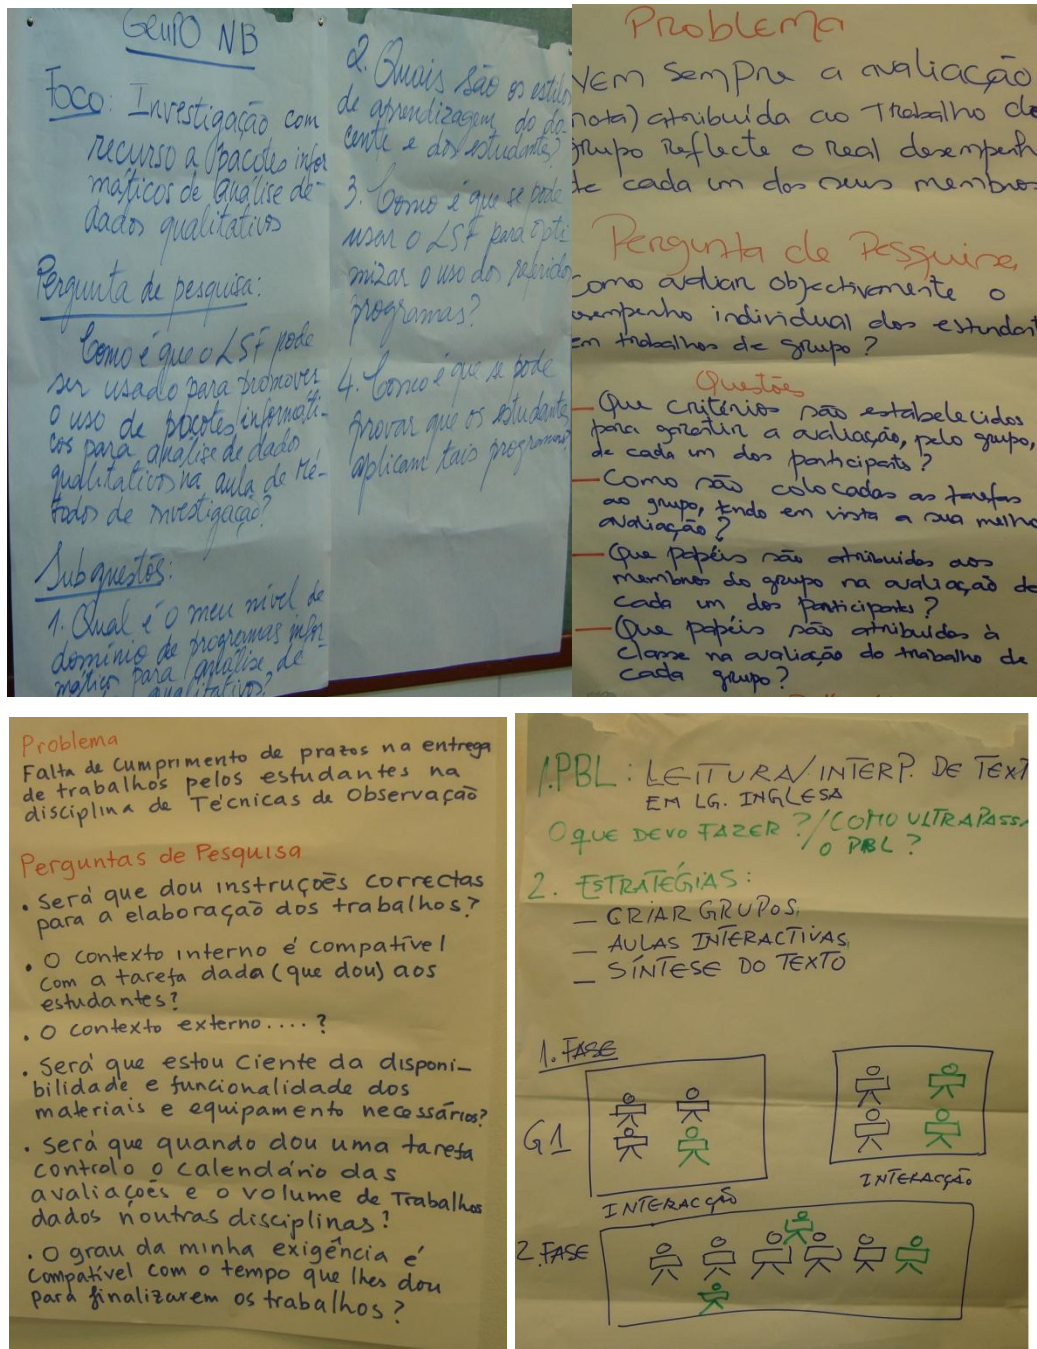 GRUPO NB
Foco: Investigação com
recurso a pacotes infor
máticos de análise de
dados qualitativos
Pergunta de pesquisa:
Como é que o LSF pode
ser usado para promover
o uso de pacotes informáti-
cos para análise de dados
qualitativos na aula de Mé-
todos de investigação?
Subquestões:
1. Qual é o meu nível de
domínio de programas infor-
máticos para análise de
qualitativos?
2. Quais são os estilos
de aprendizagem do do
cente e dos estudantes?
3. Como é que se pode
usar o LSF para opti
mizar o uso dos referidos
programas?
4. Como é que se pode
provar que os estudantes
aplicam tais programas?
Problema
Nem sempre a avaliação
(nota) atribuída ao Trabalho de
grupo reflecte o real desempenh
de cada um dos seus membros
Pergunta de Pesquisa
Como avaliar objectivamente o
desempenho individual dos estudant
em trabalhos de grupo?
Questões
- Que critérios são estabelecidos
para garantir a avaliação, pelo grupo,
de cada um dos participants?
- Como são colocadas as tarefas
ao grupo, tendo em vista a sua melho
avaliação?
- Que papéis são atribuidos aos
membros do grupo na avaliação de
cada um dos participantes?
- Que papéis são atribuidos à
classe na avaliação do trabalho de
cada grupo?
Problema
Falta de cumprimento de prazos na entrega
de trabalhos pelos estudantes na
disciplina de Técnicas de Observação
Perguntas de Pesquisa
. Será que dou instruções correctas
para a elaboração dos trabalhos?
. O contexto interno é compatível
com a tarefa dada (que dou) aos
estudantes?
. O contexto externo....?
. Será que estou ciente da disponi-
bilidade e funcionalidade dos
materiais e equipamento necessários?
. Será que quando dou uma tarefa
controlo o calendário das
avaliações e o volume de Trabalhos
dados noutras disciplinas?
. O grau da minha exigência é
compatível com o tempo que lhes dou
para finalizarem os trabalhos?
1. PBL: LEITURA/INTERP. DE TEXT
EM LG. INGLESA
O QUE DEVO FAZER?/COMO ULTRAPASSA
O PBL?
2. ESTRATÉGIAS:
- CRIAR GRUPOS,
- AULAS INTERACTIVAS,
- SÍNTESE DO TEXTO
1. FASE
G1
INTERACÇÃO
INTERACÇÃO
2. FASE